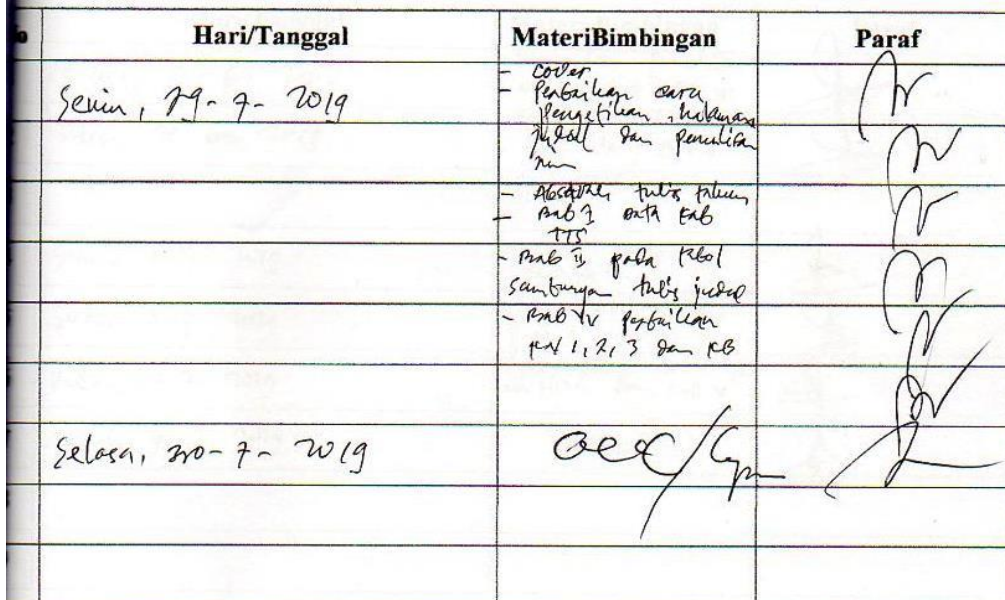 Hari/Tanggal MateriBimbingan Paraf
Senin, 29-7-2019
- Cover
- Perbaikan cara
pengetikan, halaman
judul dan penulisan
nim
- Abstrak tulis tahun
- Bab I data kab
TTS
- Bab II pada tabel
sambungan tulis judul
- Bab IV perbaikan
KN 1, 2, 3 dan KB
Selasa, 30-7-2019